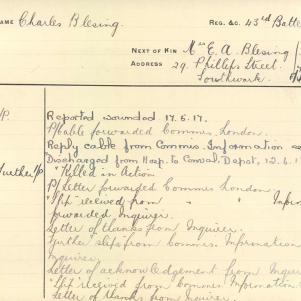 NAME Charles Blesing REG. &C. 43rd Batt
NEXT OF KIN Mrs E. A. Blesing
ADDRESS 29. Phillips Street.
Southwark.
Reported wounded 17.6.17.
Cable forwarded Commis. London.
Reply cable from Commis. Information
Discharged from Hosp. to Conval. Depot, 12.6.
Further "Killed in Action
P/Letter forwarded Commis London
"Slip" received from " " Inform
forwarded Inquirer.
Letter of thanks from Inquirer.
Further slips from Commis. Information
Inquirer.
Letter of acknowledgement from Inquir
"Slip" received from Commis. Information
Letter of thanks from Inquirer